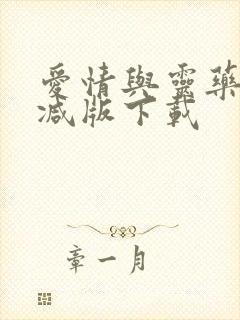 愛情與靈藥
减版下載
章一月